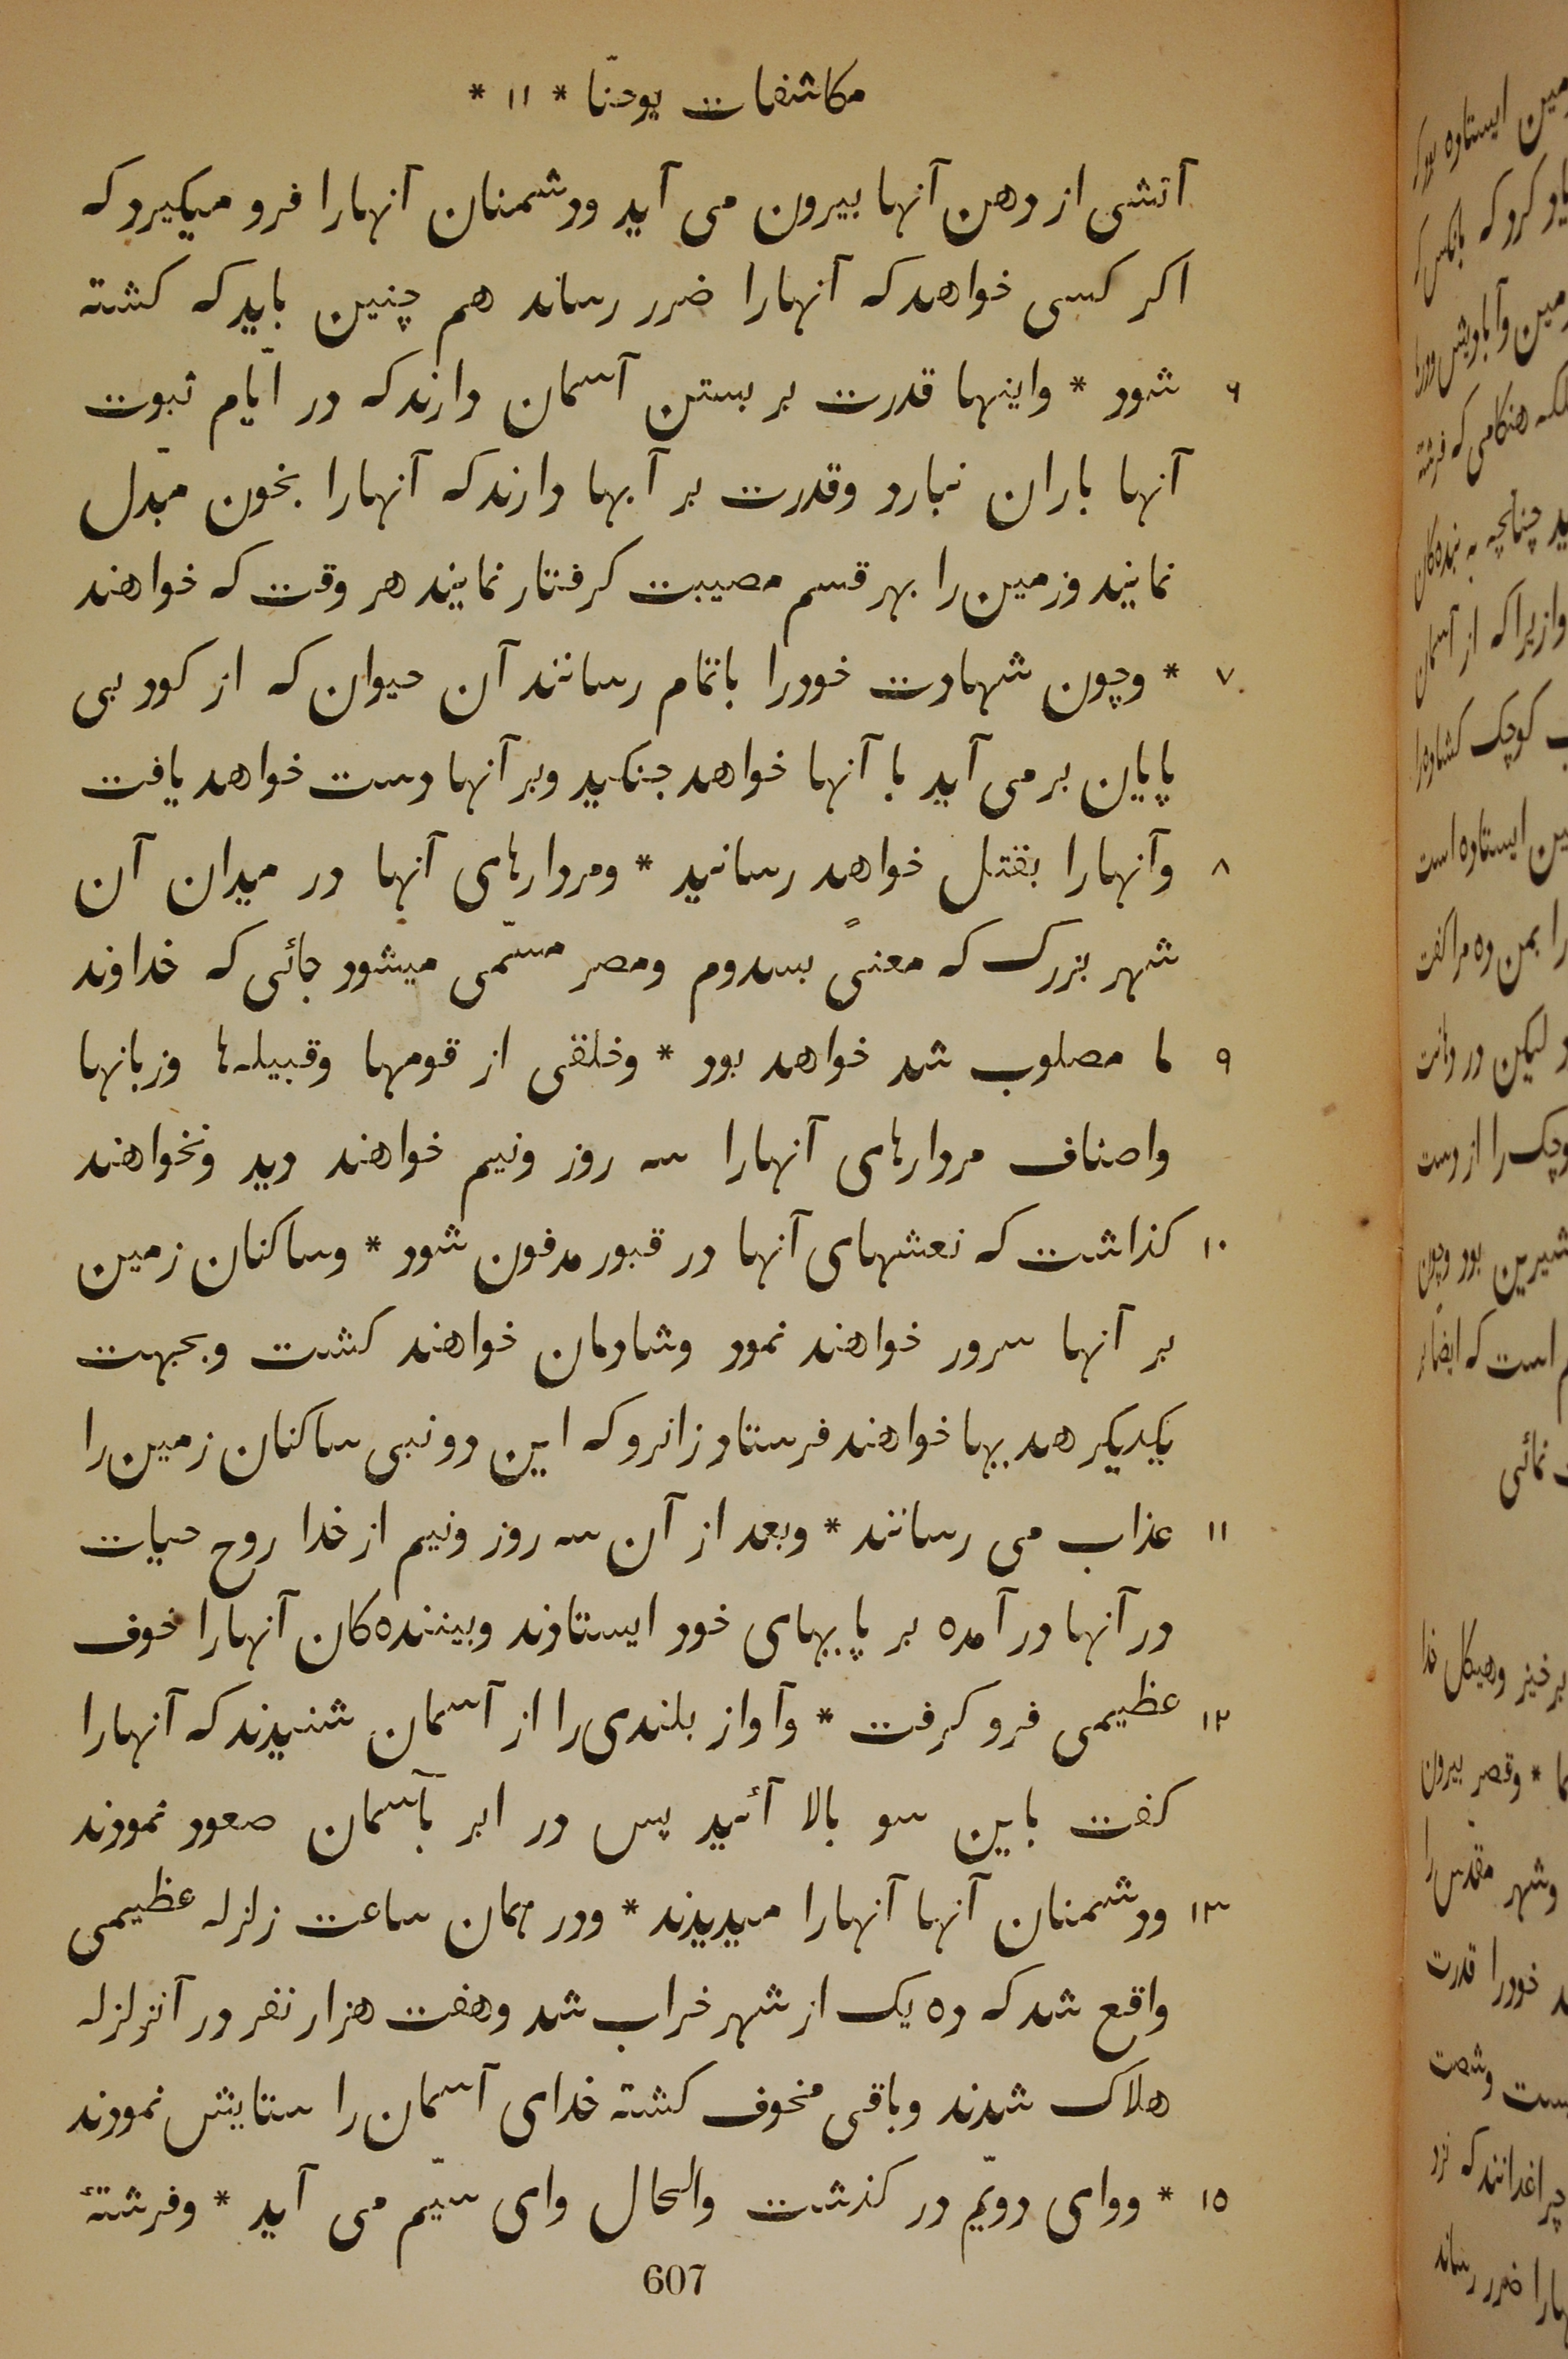 مکاشفات یوحنّا * ۱۱ *
آتشی از دهن آنها بیرون می آید ودشمنان آنهارا فرو میکیرد که
اکر کسی خواهد که آنهارا ضرر رساند هم چنین باید که کشته
۶ شود * واینها قدرت بر بستن آسمان دارند که در ایّام نبوت
آنها باران نبارد وقدرت بر آبها دارند که آنهارا بخون مبدّل
نمایند وزمین را بهر قسم مصیبت کرفتار نمایند هر وقت که خواهند
۷ * وچون شهادت خودرا باتمام رسانند آن حیوان که از کود بی
پایان بر می آید با آنها خواهد جنکید وبر آنها دست خواهد یافت
۸ وآنهارا بقتل خواهد رسانید * ومردارهای آنها در میدان آن
شهر بزرک که معنیً بسدوم ومصر مسمّی میشود جائی که خداوند
۹ ما مصلوب شد خواهد بود * وخلقی از قومها وقبیله‌ها وزبانها
واصناف مردارهای آنهارا سه روز ونیم خواهند دید ونخواهند
۱۰ کذاشت که نعشهای آنها در قبور مدفون شود * وساکنان زمین
بر آنها سرور خواهند نمود وشادمان خواهند کشت وبجهت
یکدیکر هدیها خواهند فرستاد زانرو که این دو نبی ساکنان زمین را
۱۱ عذاب می رسانند * وبعد از آن سه روز ونیم از خدا روح حیات
در آنها در آمده بر پایهای خود ایستادند وبیننده‌کان آنهارا خوف
۱۲ عظیمی فرو کرفت * وآواز بلندی را از آسمان شنیدند که آنهارا
کفت باین سو بالا آئید پس در ابر بآسمان صعود نمودند
۱۳ ودشمنان آنها آنهارا میدیدند * ودر همان ساعت زلزله عظیمی
واقع شد که ده یک از شهر خراب شد وهفت هزار نفر در آنزلزله
هلاک شدند وباقی مخوف کشته خدای آسمان را ستایش نمودند
۱۵ * ووای دویّم در کذشت والحال وای سیّم می آید * وفرشتهٔ
607